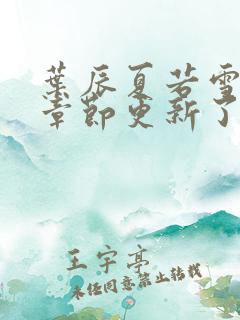 葉辰夏若雪
章節更新了
王宇亭
未经同意禁止转载